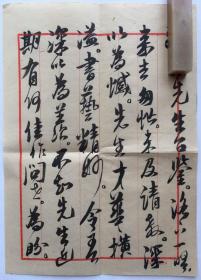 先生台鉴。洛八一晤
来去匆忙。未及请教。深
以为憾。先生才华横
溢。书艺精妙。令吾
深以为羡。不知先生近
期有何佳作问世。为盼